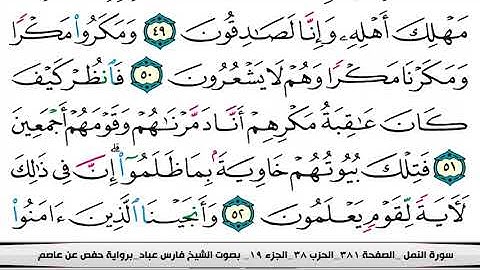 مَهْلِكَ أَهْلِهِۦ وَإِنَّا لَصَٰدِقُونَ ٤٩ وَمَكَرُوا۟ مَكْرًا
وَمَكَرْنَا مَكْرًا وَهُمْ لَا يَشْعُرُونَ ٥٠ فَٱنظُرْ كَيْفَ
كَانَ عَٰقِبَةُ مَكْرِهِمْ أَنَّا دَمَّرْنَٰهُمْ وَقَوْمَهُمْ أَجْمَعِينَ
٥١ فَتِلْكَ بُيُوتُهُمْ خَاوِيَةًۢ بِمَا ظَلَمُوٓا۟ ۗ إِنَّ فِى ذَٰلِكَ
لَءَايَةً لِّقَوْمٍ يَعْلَمُونَ ٥٢ وَأَنجَيْنَا ٱلَّذِينَ ءَامَنُوا۟
سورة النمل _الصفحة ٣٨١_ الحزب ٣٨_ الجزء ١٩_ بصوت الشيخ فارس عباد_برواية حفص عن عاصم